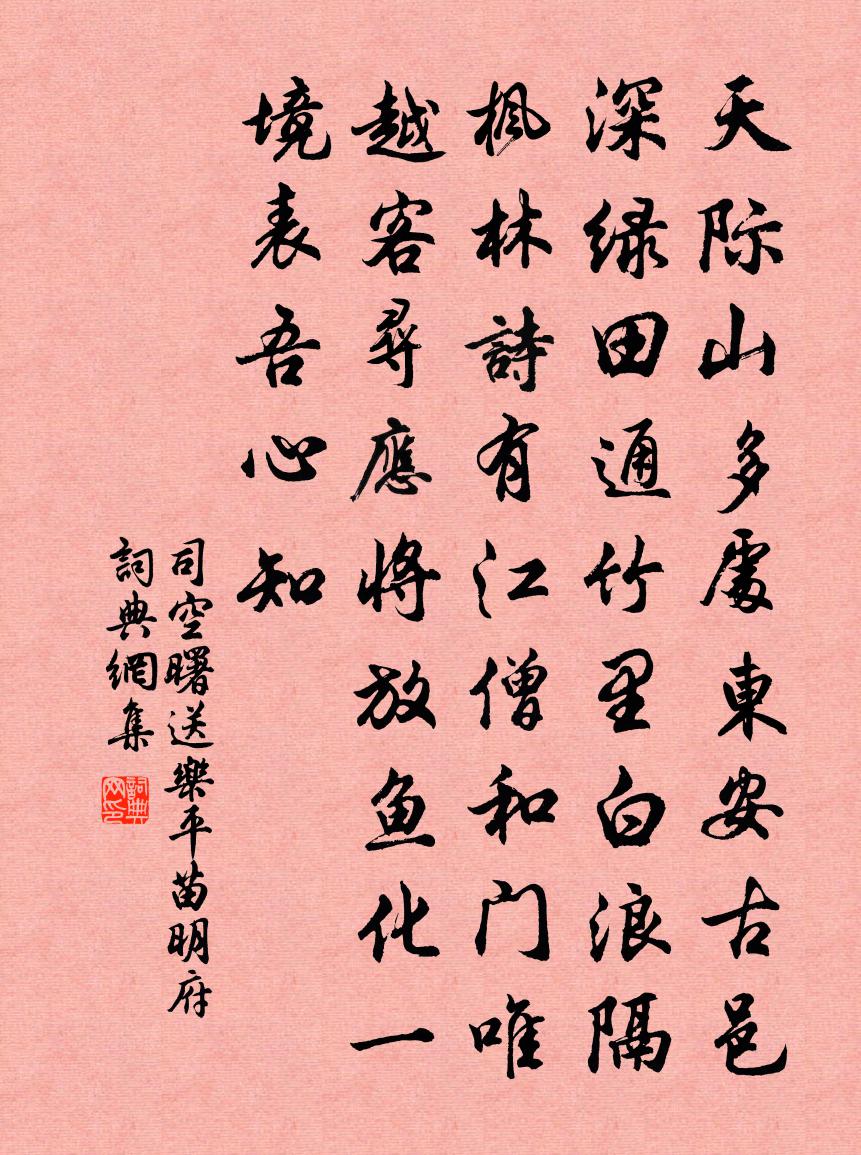 天际山多處東安古邑
深绿田通竹里白浪隔
枫林詩有江僧和门唯
越客尋應將放鱼化一
境表吾心知
司空曙送樂平苗明府
詞典網集
詞典网印